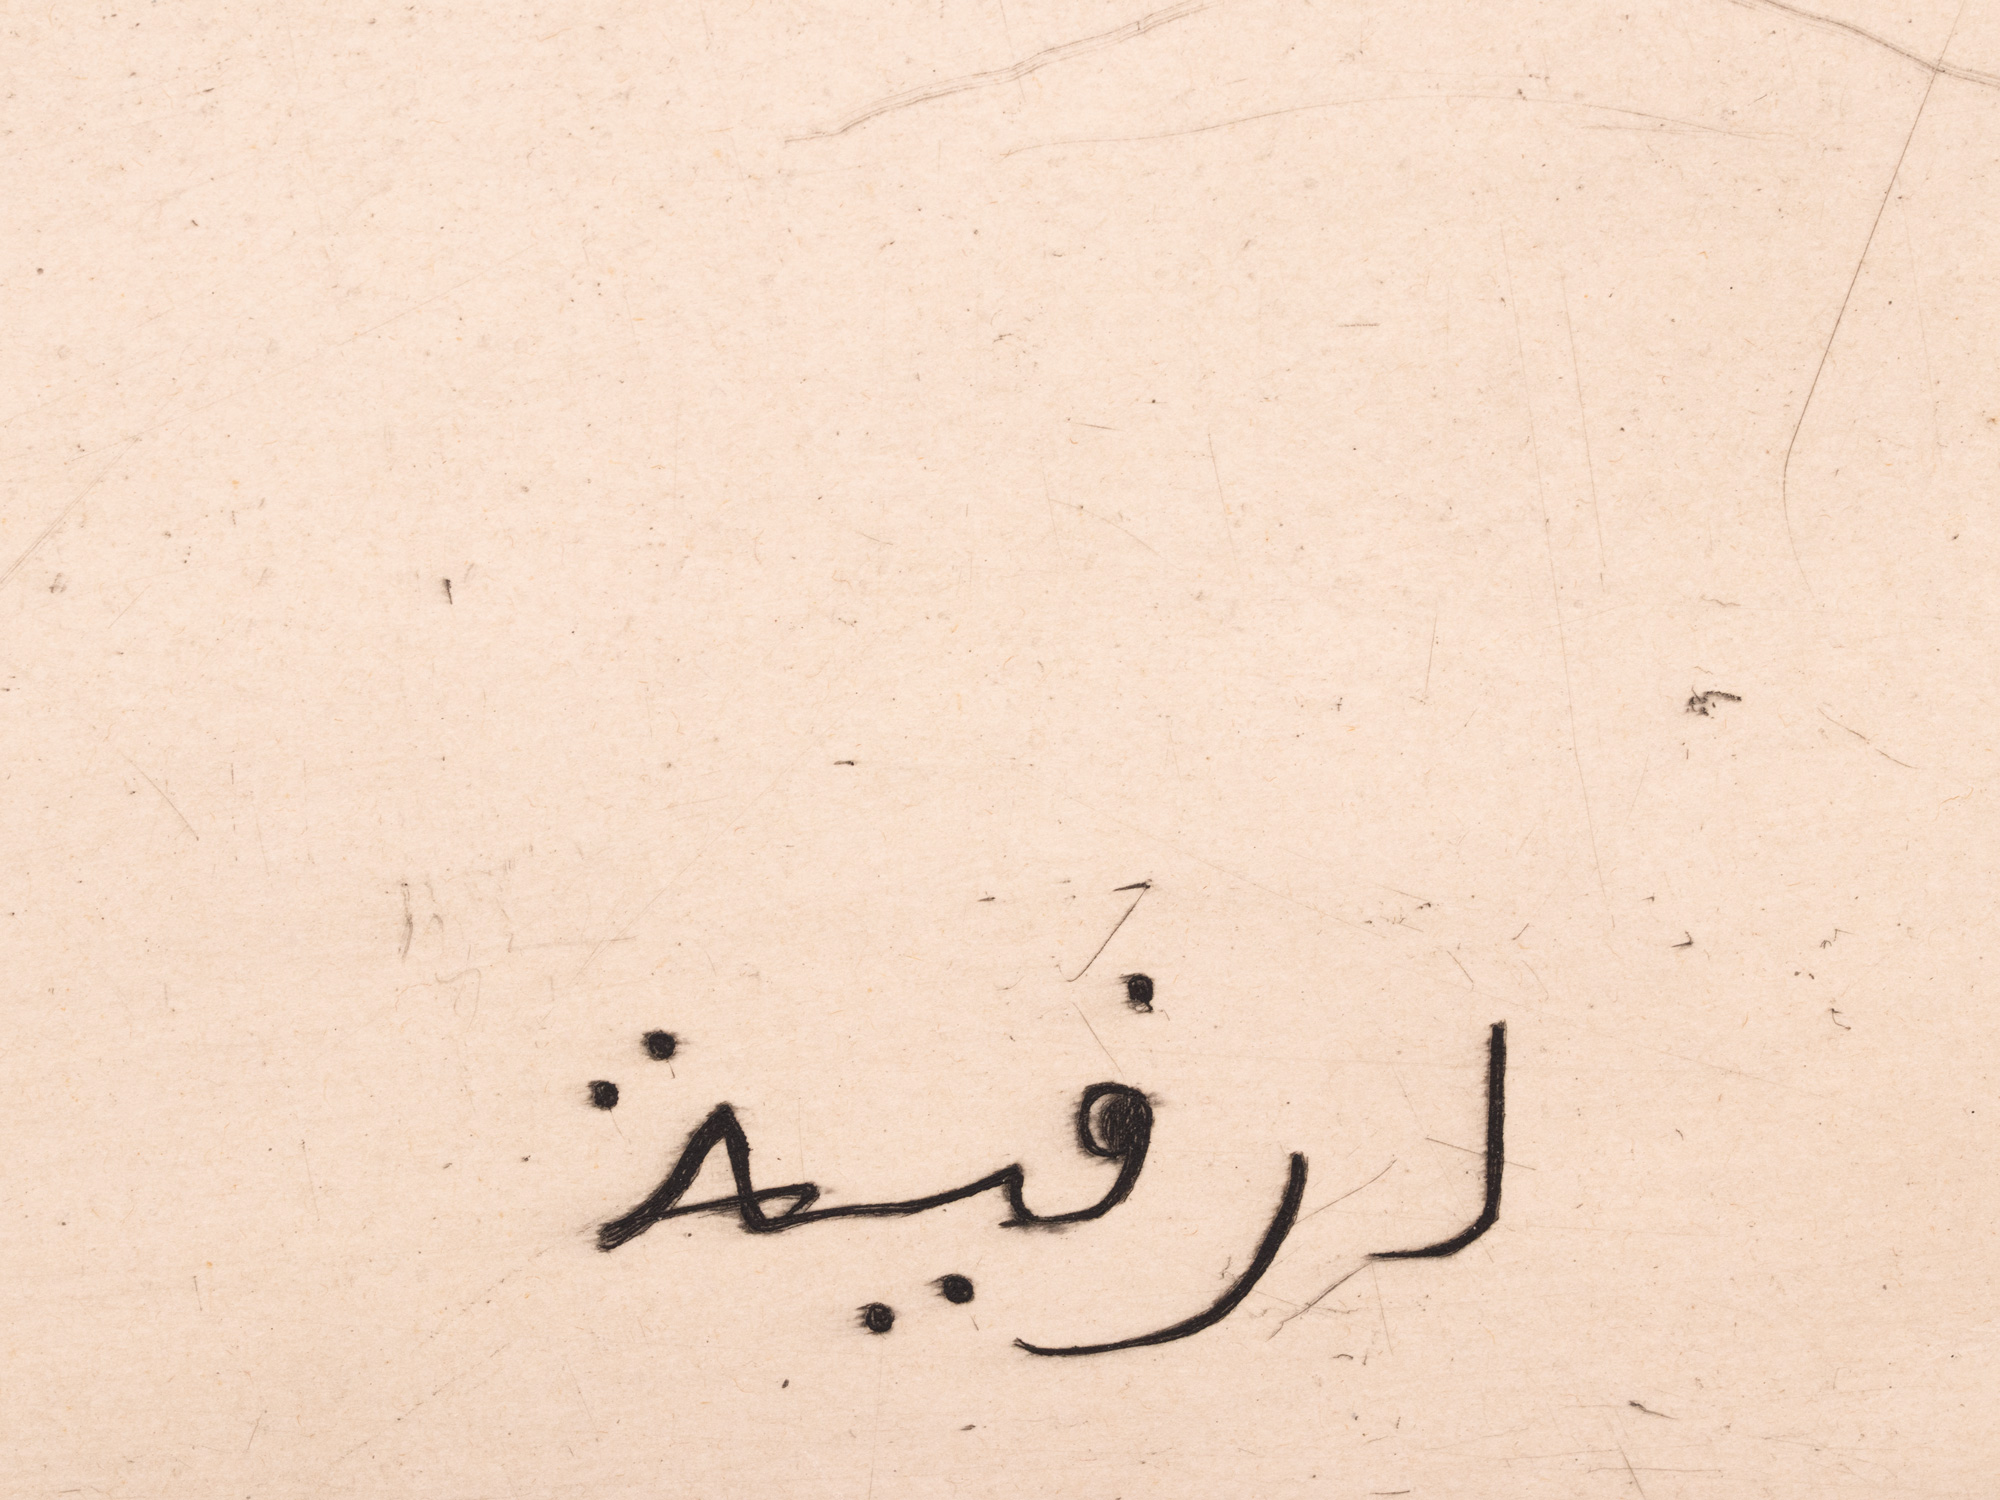 لرفية